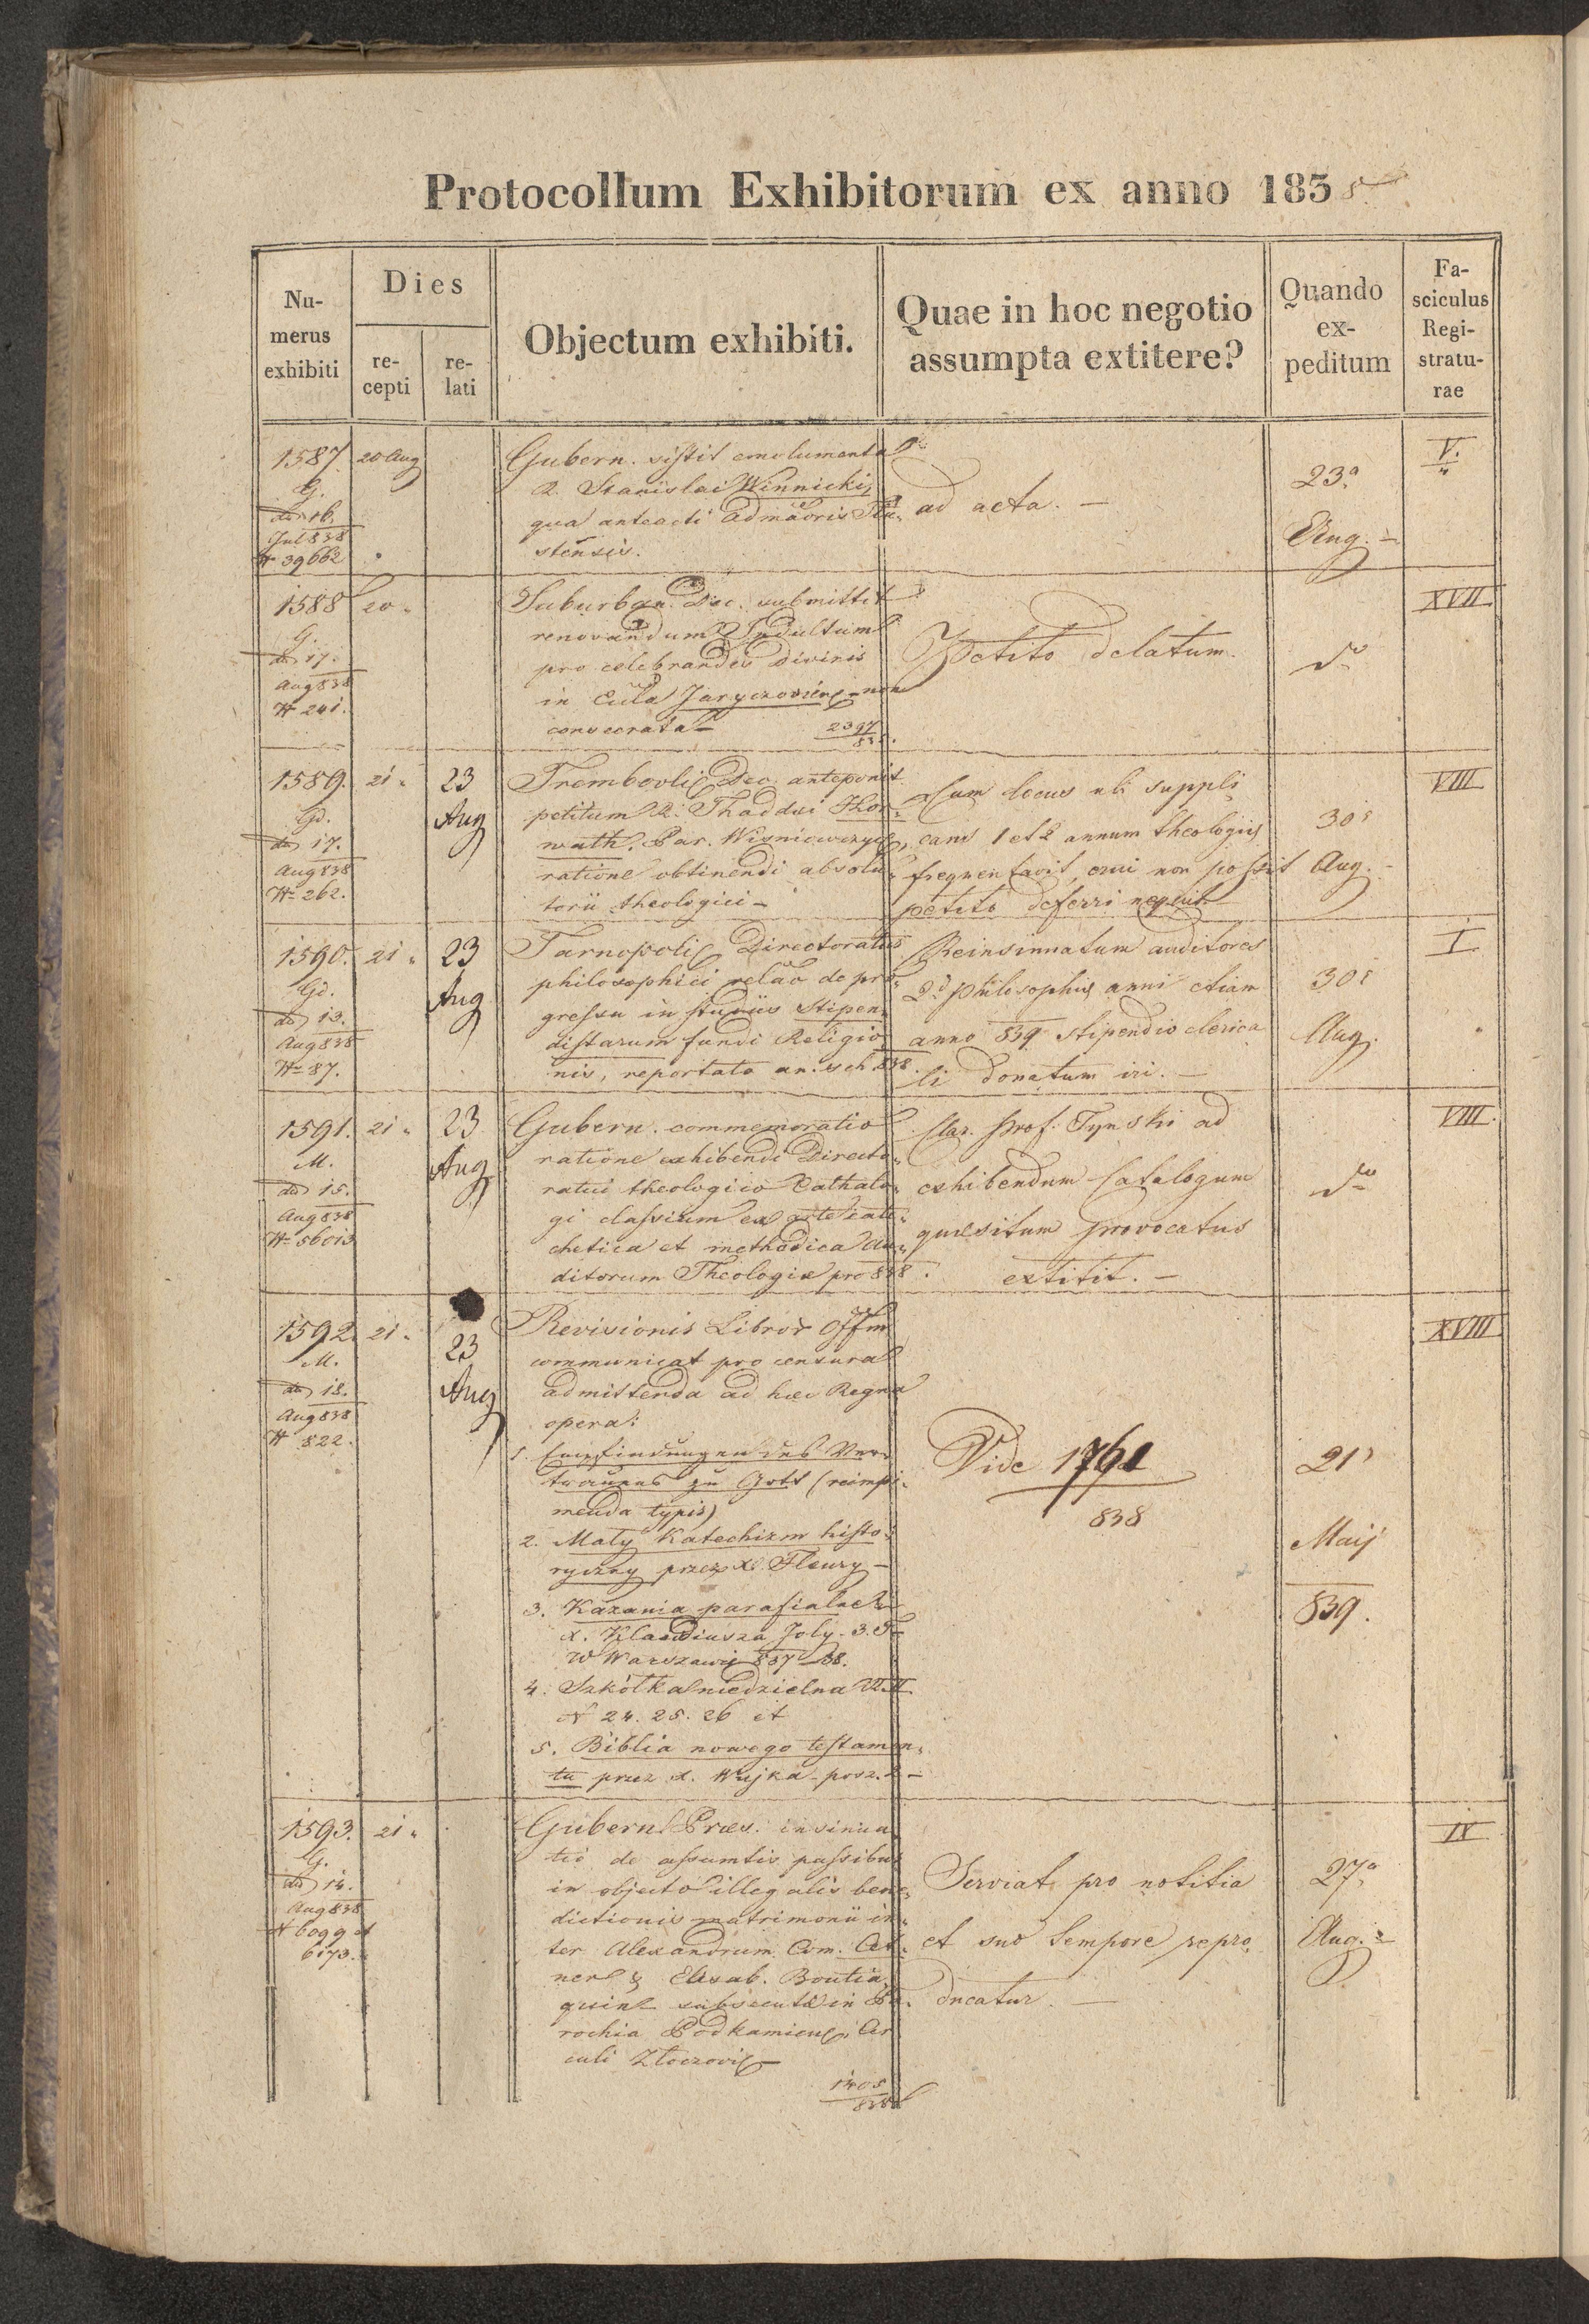 Protocollum Exhibitorum ex anno 1838
Numerus exhibiti
Dies
recepti
relati
Objectum exhibiti.
Quae in hoc negotio assumpta extitere?
Quando expeditum
Fasciculus Registraturae
1587. 20 Aug
G.
16.
Jul 838
N 39662
Gubern. sistit emolumenta
R. Stanislai Winnicki,
qua anteacti Admāoris
stensis.
ad acta. —
23a
Aug. —
V.
1588 20 „
G.
17.
Aug 838
N 241.
Suburban. Dec. submittit
renovandum Indultum
pro celebrandis divinis
in Ccla Jaryczoviens non
consecrata —
2397
835.
Petito delatum.
do
XVII
1589. 21 „ 23 Aug
Gd.
17.
Aug 838
N 262.
Trembovlis Dec. anteponit
petitum R. Thaddei Hor-
wath. Par. Wisniewczyc,
ratione obtinendi absolu-
torii theologici —
Cum locus ubi suppli-
cans 1 et 2 annum theologiis
frequentavit, erui non possit
petito deferri nequit
30a
Aug. —
VIII
1590. 21 „ 23 Aug
Gd.
13.
Aug 838
N 87.
Tarnopolis Directoratus
philosophici relāo de pro-
gressu in studiis Stipen-
distarum fundi Religio-
nis, reportato an. sch 838.
Reinsinuatum auditores
2di philosophiae anni etiam
anno 839 stipendio clerica
li donatum iri. —
30a
Aug.
I
1591. 21 „ 23 Aug
M.
15.
Aug 838
N 56013
Gubern. commemoratio
ratione exhibendi Directo-
ratui theologico Cathalo-
gi classium ex arte cate-
chetica et methodica au-
ditorum Theologiae pro 838.
Clar. Prof. Tynski ad
exhibendum Catalogum
quaesitum provocatus
extitit. —
do
VIII.
1592. 21 „ 23 Aug
M.
18.
Aug 838
N 822.
Revisionis Libror Offm
communicat pro censura
admittenda ad haec Regna
opera:
1. Empfindungen des Ver-
trauens zu Gott (reimpri-
menda typis)
2. Mały Katechizm histo-
ryczny przez X. Fleury —
3. Kazania parafialne
X. Klaudiusza Joly. 3. T
w Warszawie 837—38.
4. Szkółka niedzielna R. II
N 24. 25. 26 et
5. Biblia nowego testamen-
tu przez X. Wujka - posz. 2 —
Vide 1761
838
21a
Maij
839.
XVIII
1593. 21 „
G.
14.
Aug 838
N 6099 et
6173.
Gubern. Præs. insinua
tio de assumtis passibus
in objecto illegalis bene-
dictionis matrimonii in-
ter Alexandrum Com. Cet-
ner & Elisab. Boutia-
quine subsecuta in Pa-
rochia Podkamiens, Cir
culi Złoczovis —
1405
838
Serviat pro notitia
et suo tempore repro-
ducatur. —
27a
Aug. —
IX